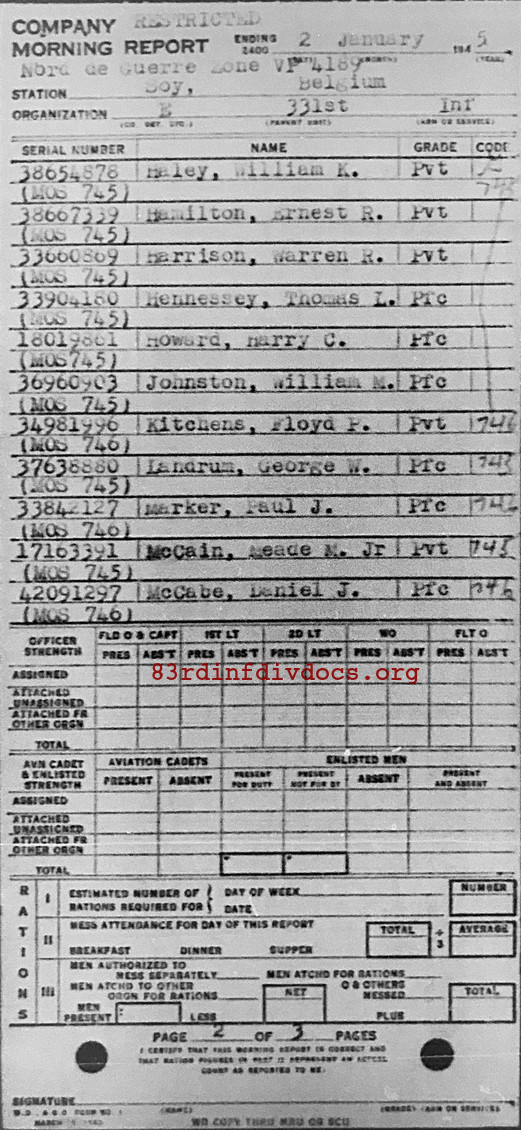 COMPANY RESTRICTED
MORNING REPORT ENDING 2400 2 January 1945
Nord de Guerre Zone VP 4189
STATION Soy, Belgium
ORGANIZATION E 331st Inf
(CO. DET. ETC.) (PARENT UNIT) (ARM OR SERVICE)
SERIAL NUMBER NAME GRADE CODE
38654878 Haley, William K. Pvt
(MOS 745) 745
38667339 Hamilton, Ernest R. Pvt
(MOS 745)
33660869 Harrison, Warren R. Pvt
(MOS 745)
33904180 Hennessey, Thomas L. Pfc
(MOS 745)
18019861 Howard, Harry C. Pfc
(MOS745)
36960903 Johnston, William M. Pfc
(MOS 745)
34981996 Kitchens, Floyd P. Pvt 746
(MOS 746)
37638880 Landrum, George W. Pfc 745
(MOS 745)
33842127 Marker, Paul J. Pfc 746
(MOS 746)
17163391 McCain, Meade M. Jr Pvt 745
(MOS 745)
42091297 McCabe, Daniel J. Pfc 746
(MOS 746)
OFFICER STRENGTH FLD O & CAPT 1ST LT 2D LT WO FLT O
PRES ABS'T PRES ABS'T PRES ABS'T PRES ABS'T PRES ABS'T
ASSIGNED
83rdinfdivdocs.org
ATTACHED UNASSIGNED
ATTACHED FR OTHER ORGN
TOTAL
AVN CADET & ENLISTED STRENGTH AVIATION CADETS ENLISTED MEN
PRESENT ABSENT PRESENT FOR DUTY PRESENT NOT FOR DY ABSENT PRESENT AND ABSENT
ASSIGNED
ATTACHED UNASSIGNED
ATTACHED FR OTHER ORGN
TOTAL
RATIONS
I ESTIMATED NUMBER OF RATIONS REQUIRED FOR DAY OF WEEK DATE NUMBER
II MESS ATTENDANCE FOR DAY OF THIS REPORT TOTAL ÷ 3 AVERAGE
BREAKFAST DINNER SUPPER
III MEN AUTHORIZED TO MESS SEPARATELY MEN ATCHD FOR RATIONS
MEN ATCHD TO OTHER ORGN FOR RATIONS NET O & OTHERS MESSED TOTAL
MEN PRESENT LESS PLUS
PAGE 2 OF 3 PAGES
I CERTIFY THAT THIS MORNING REPORT IS CORRECT AND
THAT RATION FIGURES IN PART II REPRESENT AN ACTUAL
COUNT AS REPORTED TO ME:
SIGNATURE
W.D., A.G.O. FORM NO. 1 (NAME) (GRADE) (ARM OR SERVICE)
WD COPY THRU MRU OR SCU